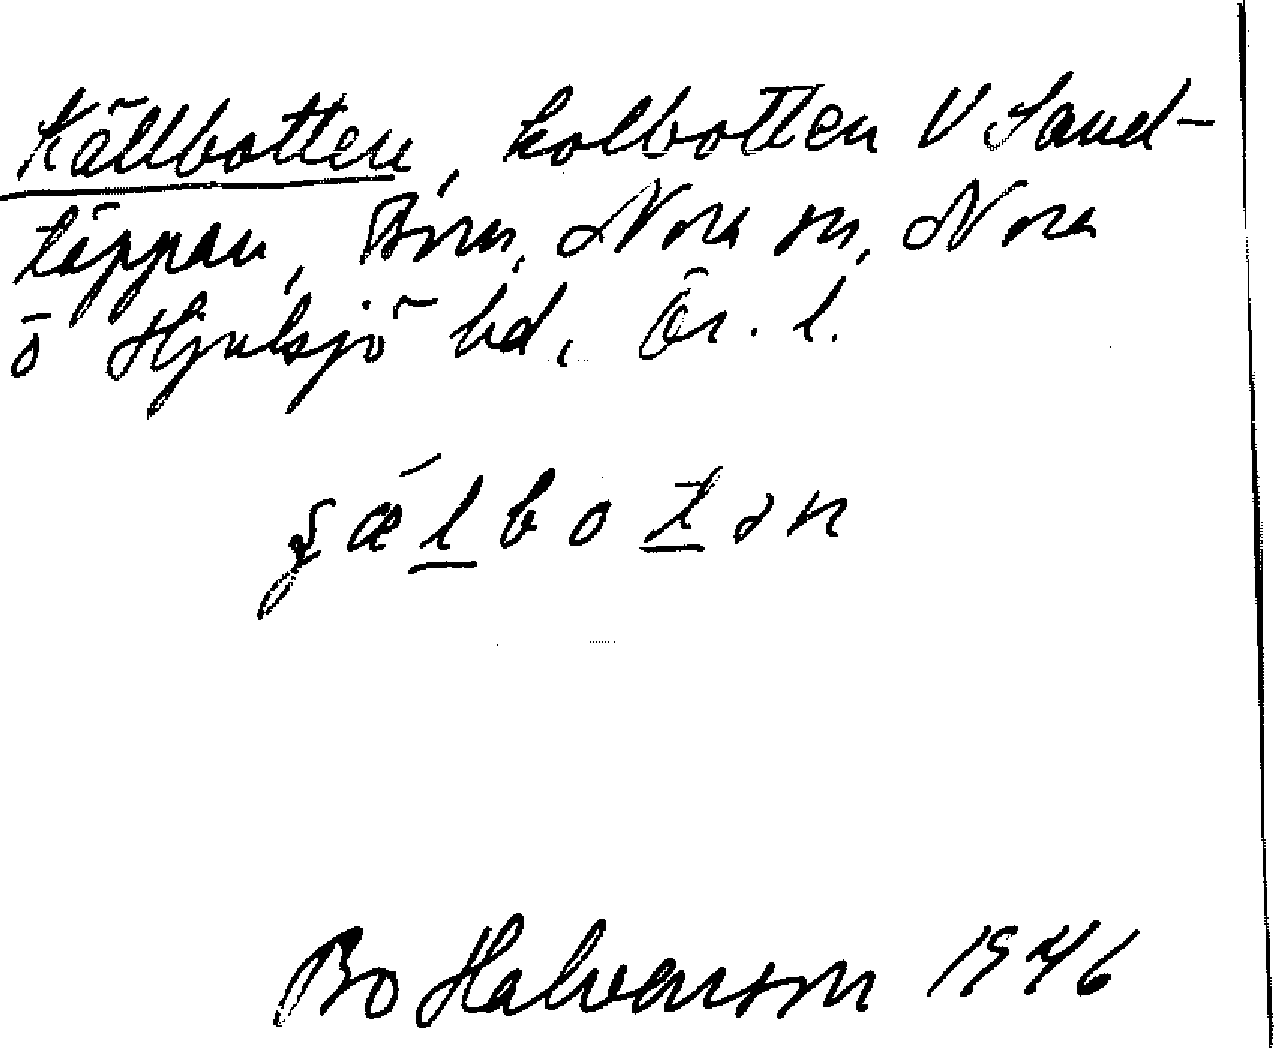 Källbotten, kolbotten V Sand-
täppan, Nora sn, Nora
o Hjulsjö bd, Ör. l.
Bo Halvarsson 1946